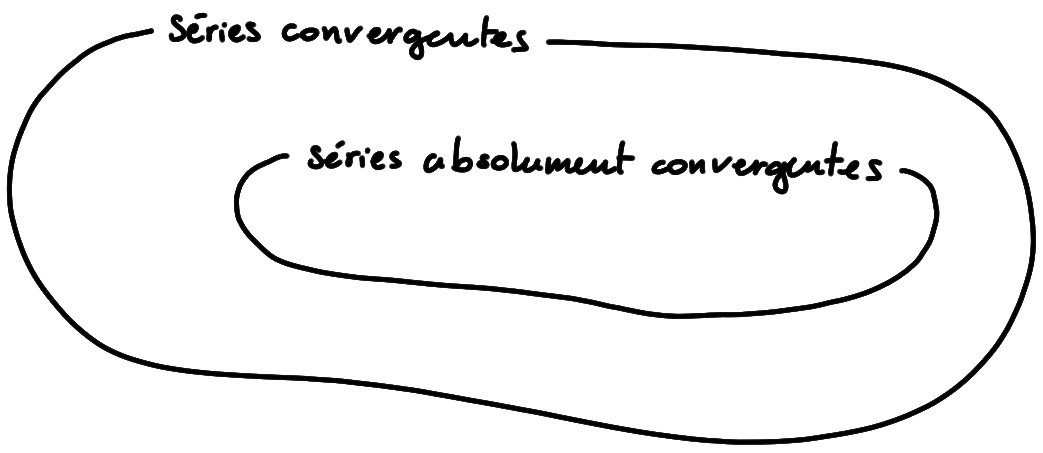 Séries convergentes
séries absolument convergentes